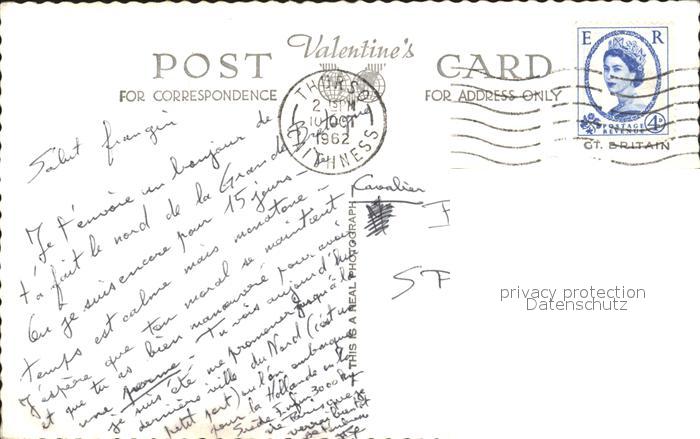 POST Valentine's CARD
FOR CORRESPONDENCE FOR ADDRESS ONLY
THURSO
2 15PM
10 OCT
1962
CAITHNESS
E R
POSTAGE
REVENUE 4D
GT. BRITAIN
Salut frangin
Je t'envoie un bonjour de
t'à fait le nord de la Grande Bretagne
Où je suis encore pour 15 jours - le
temps est calme mais monotone -
J'espère que ton moral se maintient
et que tu as bien manœuvré pour avoir
une perme - Tu vois aujourd'hui
je suis été me promener jusqu'à la
dernière ville du Nord (c'est un
petit port) où l'on embarque
pour la Hollande ou la
Suède Enfin 3000 km
de Paris que je
verrai bientôt
THIS IS A REAL PHOTOGRAPH
Cavalier
F
SF
privacy protection
Datenschutz